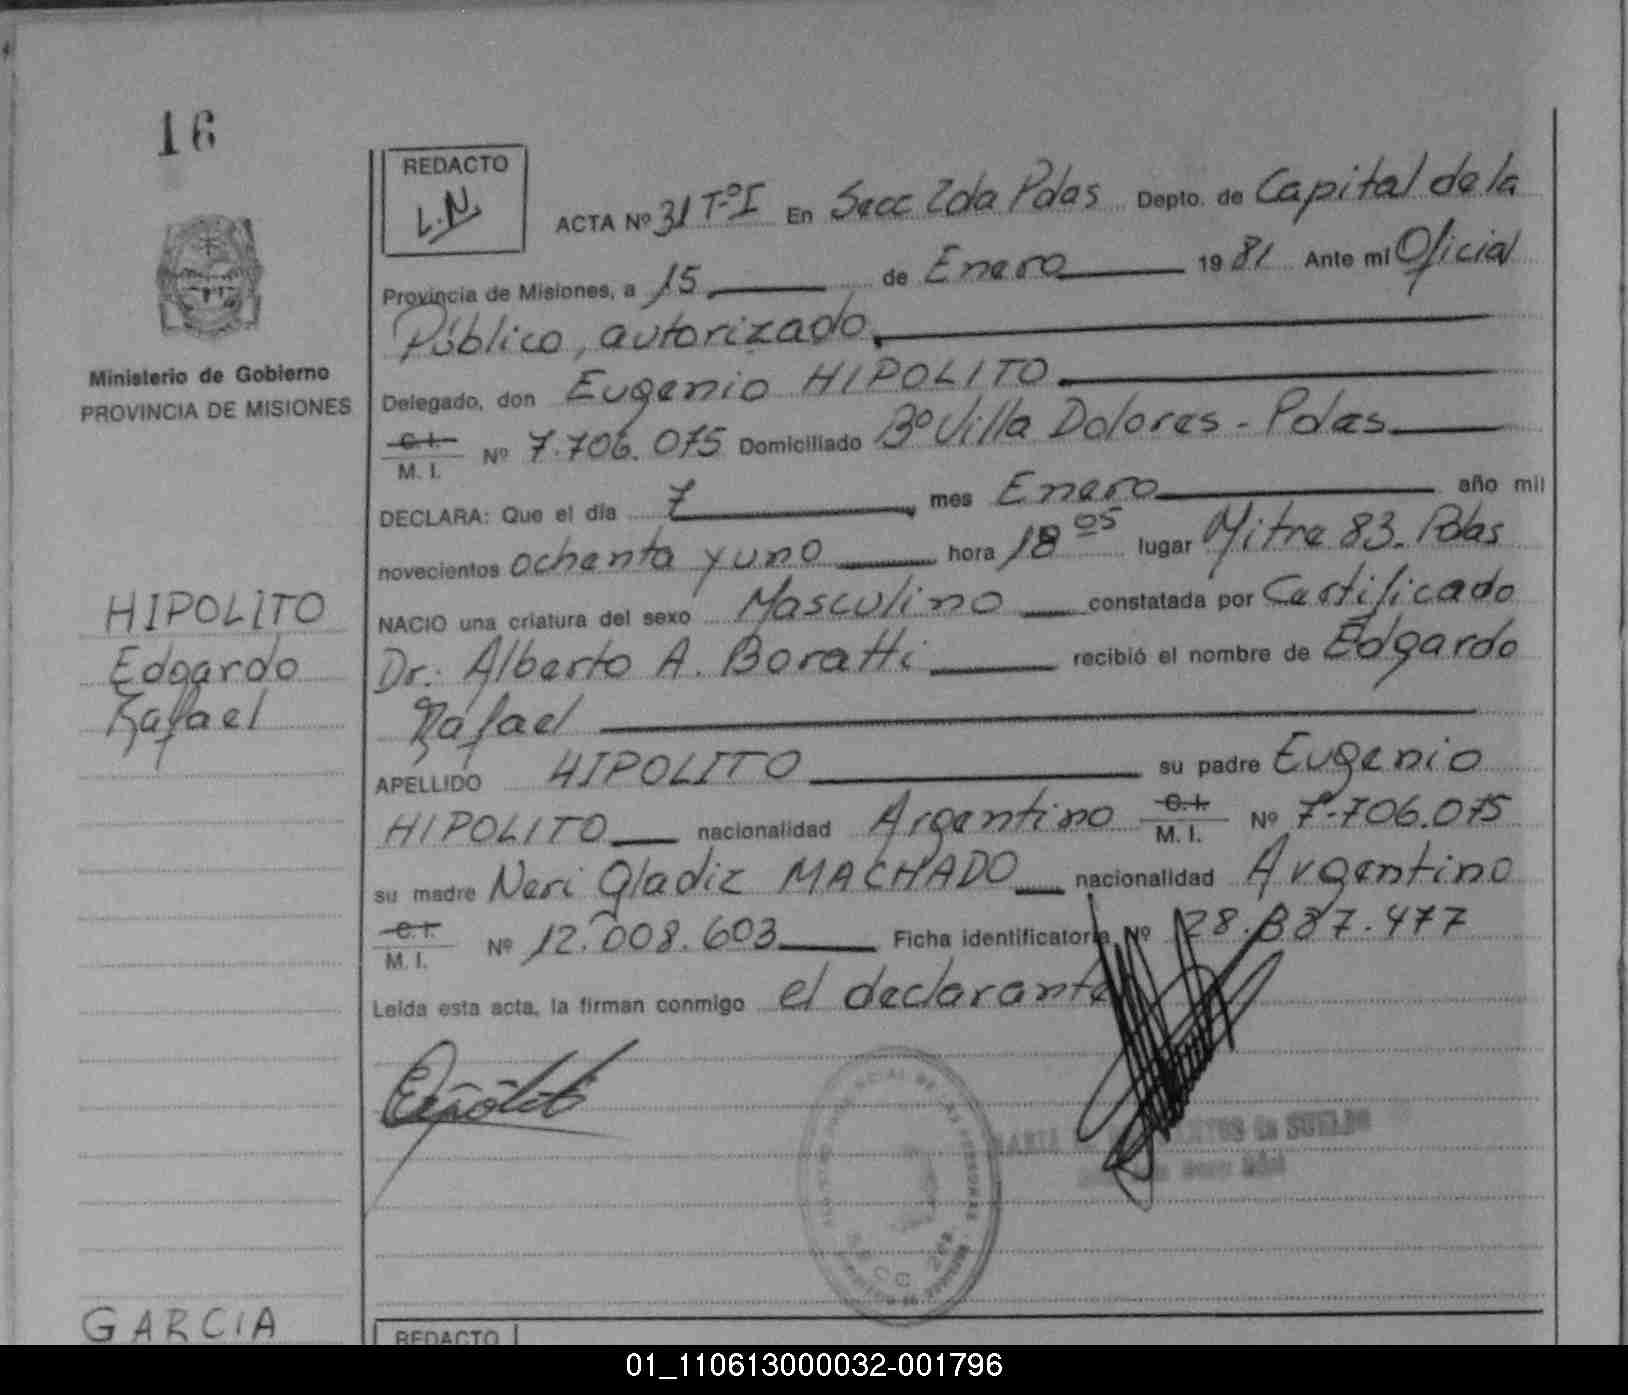 16
REDACTO
L.N.
ACTA Nº 31 Tº I En Secc 2da Pdas Depto. de Capital de la
Provincia de Misiones, a 15 de Enero 1981 Ante mi Oficial
Público, autorizado
Delegado, don Eugenio HIPOLITO
C. I.
M. I. Nº 7.706.075 Domiciliado Bº Villa Dolores - Pdas
DECLARA: Que el día 7 mes Enero año mil
novecientos ochenta y uno hora 18 05 lugar Mitre 83. Pdas
NACIO una criatura del sexo Masculino constatada por Certificado
Dr. Alberto A. Boratti recibió el nombre de Edgardo
Rafael
APELLIDO HIPOLITO su padre Eugenio
HIPOLITO nacionalidad Argentino C. I. M. I. Nº 7.706.075
su madre Neri Gladiz MACHADO nacionalidad Argentino
C. I.
M. I. Nº 12.008.603 Ficha identificatoria Nº 28.837.477
Leída esta acta, la firman conmigo el declarante
Ministerio de Gobierno
PROVINCIA DE MISIONES
HIPOLITO
Edgardo
Rafael
SUELDO
SECC 2da
GARCIA
REDACTO
01_110613000032-001796